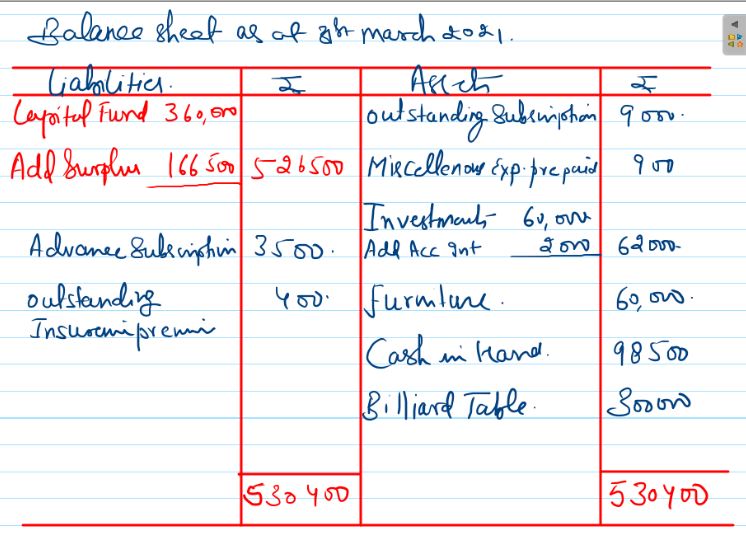 Balance sheet as at 31st march 2021.
Liabilities. ₹ Assets ₹
Capital Fund 360,000 Outstanding Subscription 9000.
Add Surplus 166500 526500 Miscellenous Exp. prepaid 900
Investments 60,000
Advance Subscription 3500. Add Acc Int 2000 62000
Outstanding 400. Furniture. 60,000.
Insurance premi
Cash in Hand. 98500
Billiard Table. 300000
530400 530400